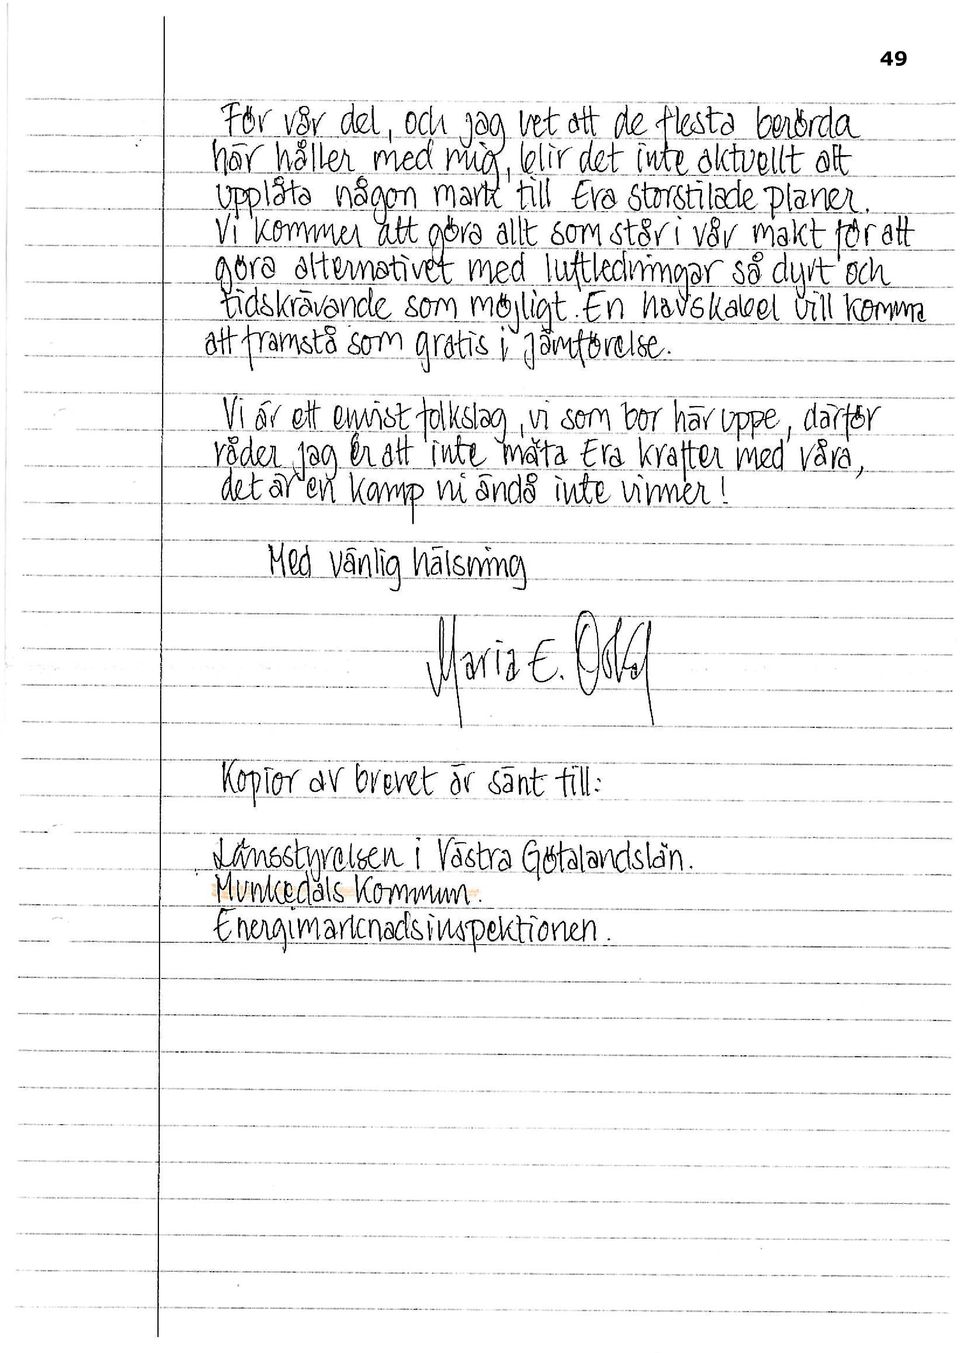 49
För vår del, och jag vet att de flesta berörda
här håller med mig, blir det inte aktuellt att
upplåta någon mark till Era storstilade planer.
Vi kommer att göra allt som står i vår makt för att
göra alternativet med luftledningar så dyrt och
tidskrävande som möjligt. En havskabel vill komma
att framstå som gratis i jämförelse.
Vi är ett envist folkslag, vi som bor här uppe, därför
råder jag Er att inte mäta Era krafter med våra,
det är en kamp ni ändå inte vinner!
Med vänlig hälsning
Maria E.
Kopior av brevet är sänt till:
Länsstyrelsen i Västra Götalandslän.
Munkedals Kommun.
Energimarknadsinspektionen.